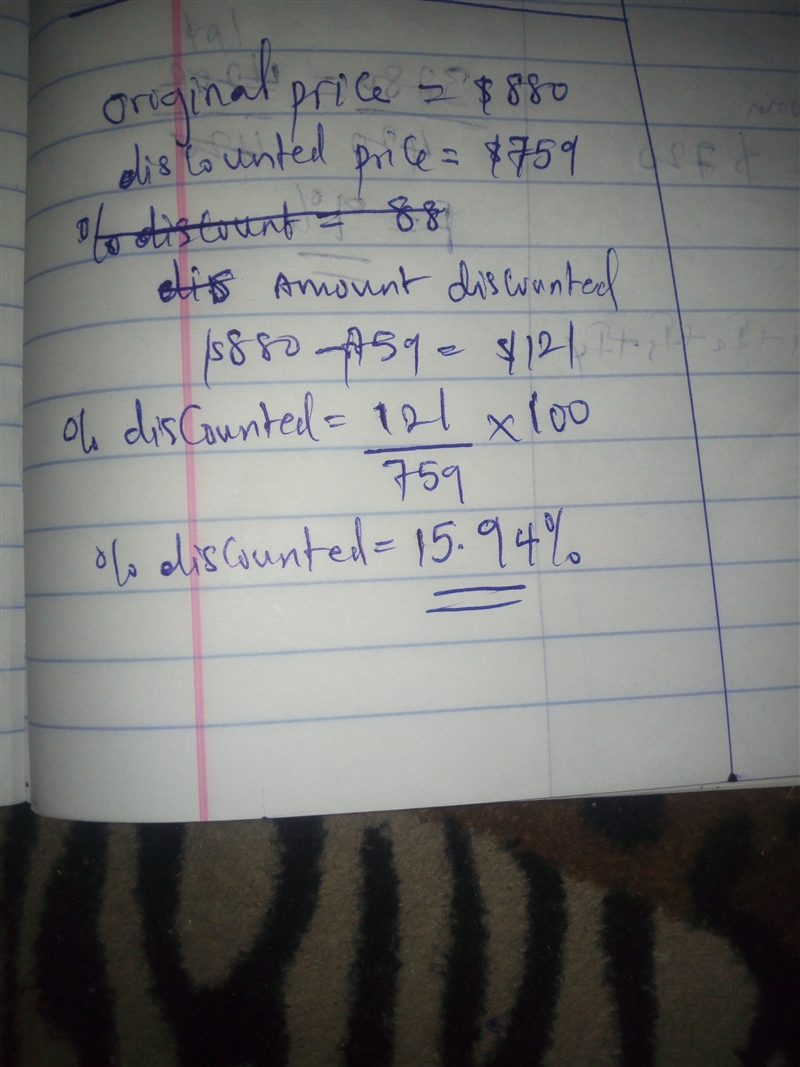 original price = $880
discounted price = $759
% discount = 88
dis Amount discounted
$880 - 759 = $121
% disCounted = 121 × 100
759
% discounted = 15.94%